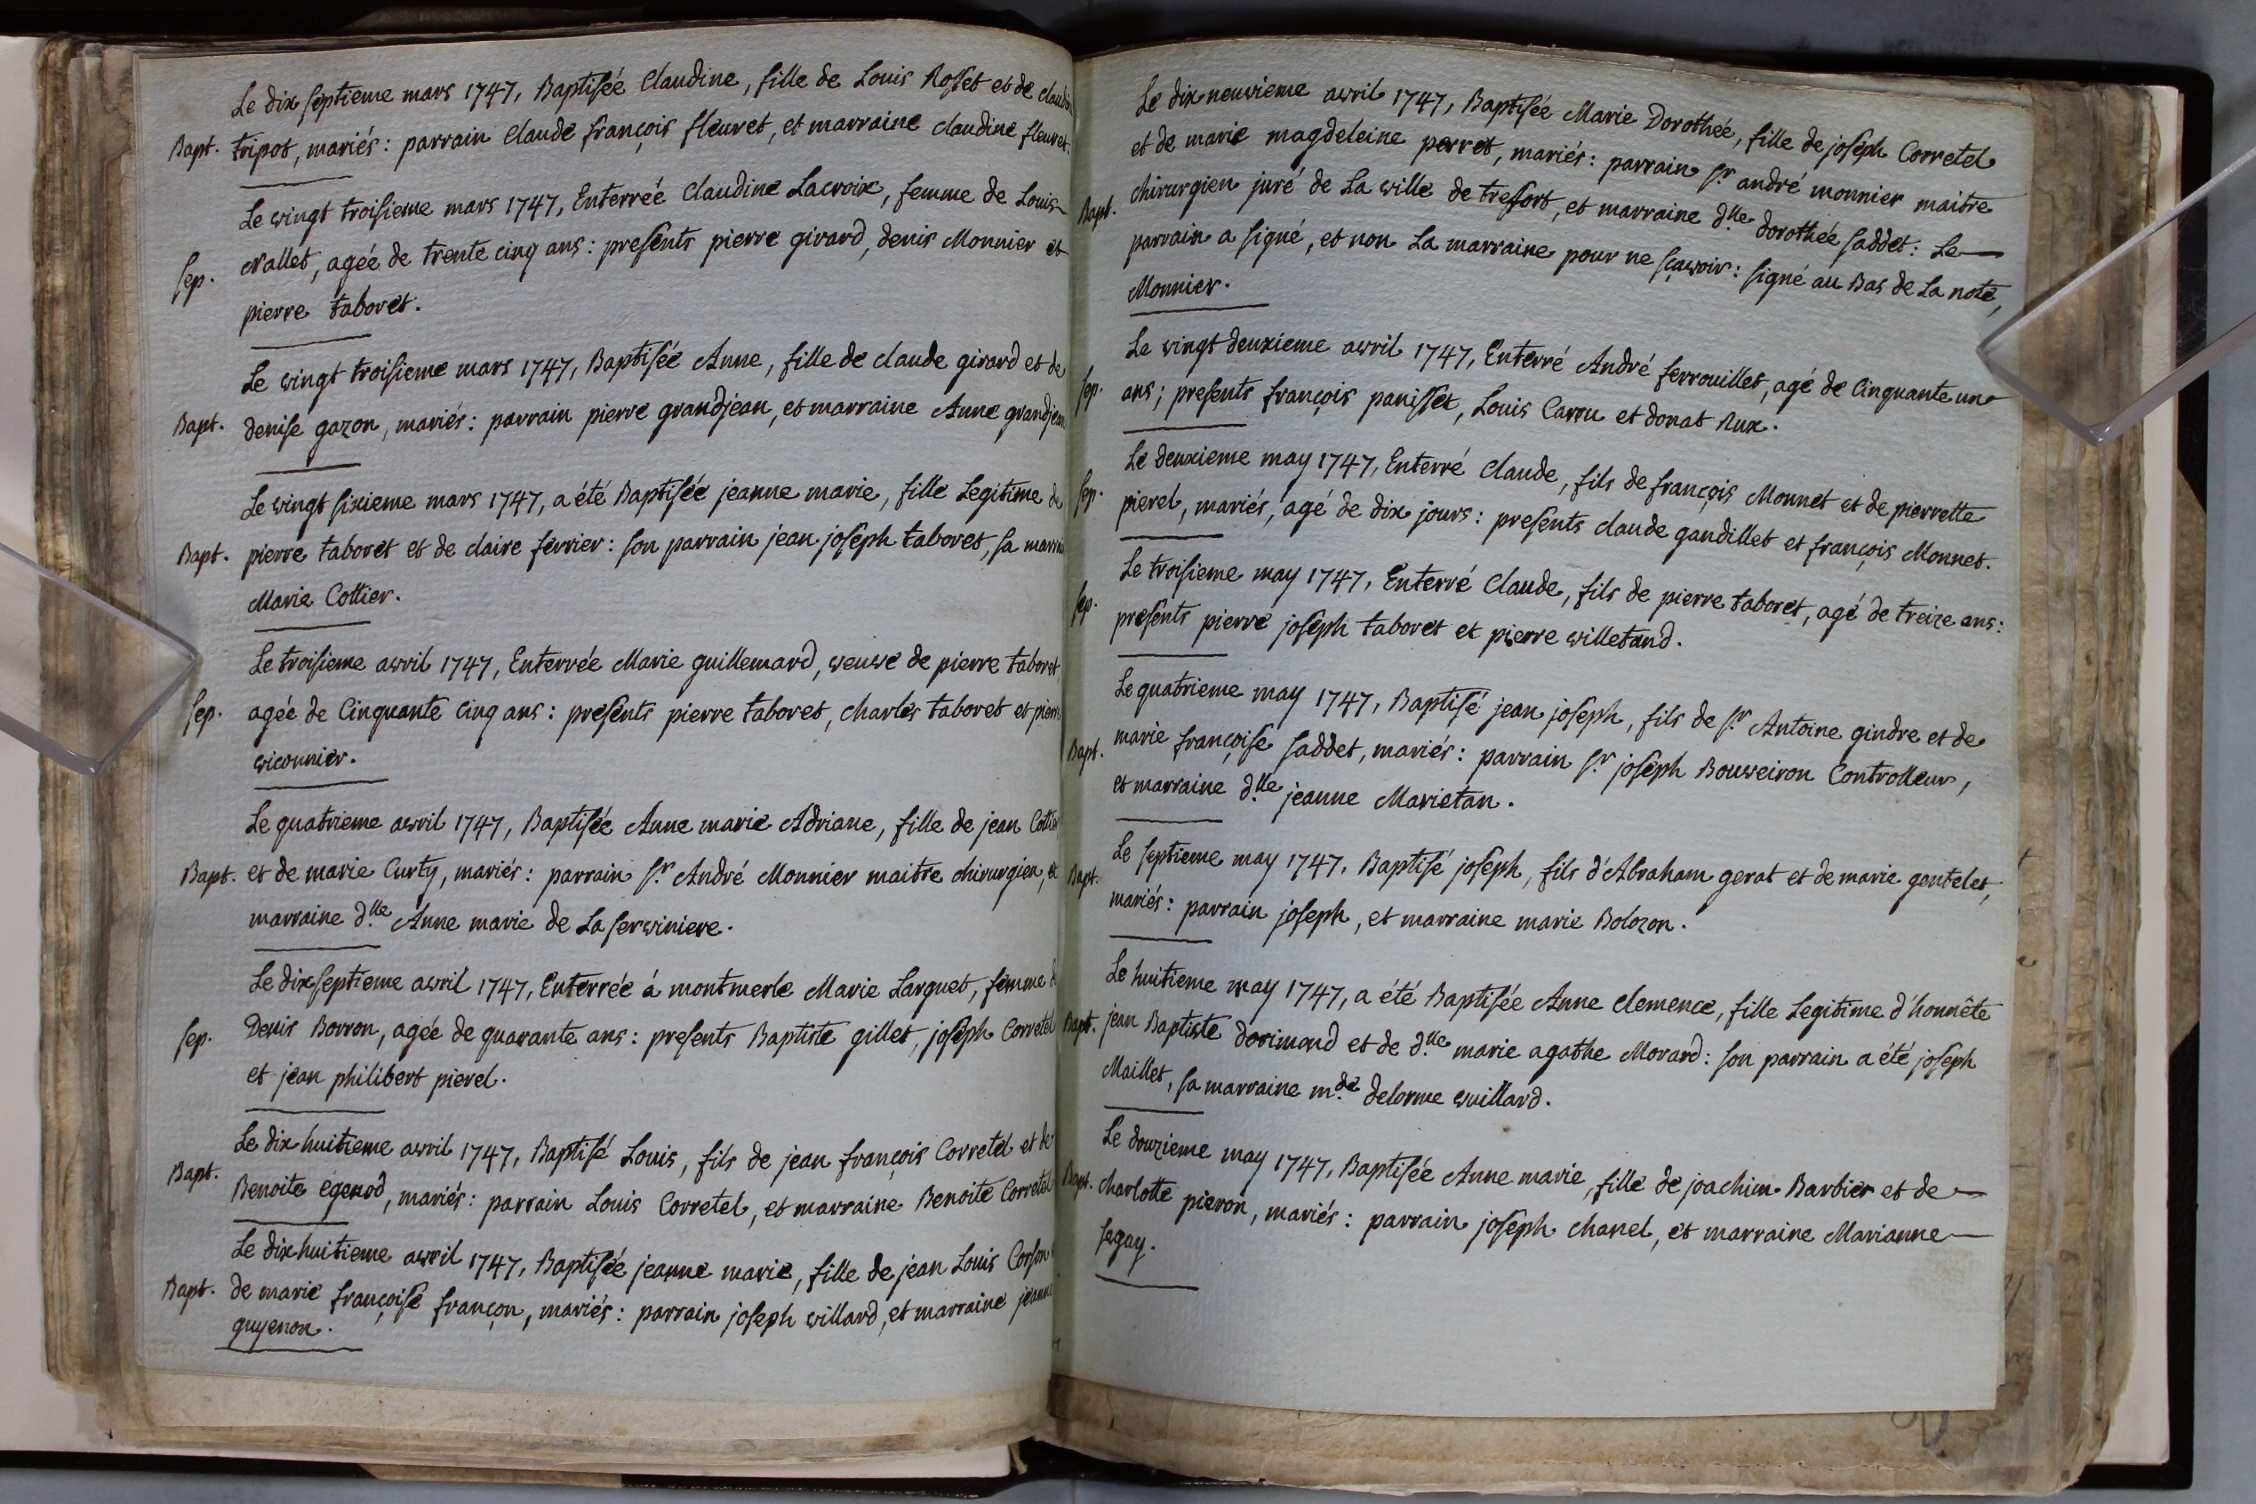 Le dix septieme mars 1747, Baptisée Claudine, fille de Louis Rosset et de claudi
Bapt. tripot, mariés : parrain Claude françois fleuret, et marraine claudine fleuret.
Le vingt troisieme mars 1747, Enterreé Claudine Lacroix, femme de Louis
Sep. Nallet, agée de trente cinq ans : presents pierre girard, denis Monnier et
pierre taboret.
Le vingt troisieme mars 1747, Baptisée Anne, fille de claude girard et de
Bapt. denise gazon, mariés : parrain pierre grandjean, et marraine Anne grandjean
Le vingt sixieme mars 1747, a été Baptisée jeanne marie, fille Legitime de
Bapt. pierre taboret et de claire ferrier : son parrain jean joseph taboret, sa marrai
Marie Cottier.
Le troisieme avril 1747, Enterrée Marie guillemard, veuve de pierre taboret
Sep. agée de Cinquante cinq ans : presents pierre taboret, charles taboret et pierre
viconnier.
Le quatrieme avril 1747, Baptisée Anne marie Adriane, fille de jean Cottier
Bapt. et de marie Curty, mariés : parrain Sr. André Monnier maitre chirurgien, et
marraine dlle. Anne marie de La serviniere.
Le dix septieme avril 1747, Enterrée á montmerle Marie Larguet, femme d
Sep. Denis Borron, agée de quarante ans : presents Baptiste gillet, joseph Corretel
et jean philibert pierel.
Le dix huitieme avril 1747, Baptisé Louis, fils de jean françois Corretel et de
Bapt. Benoite egenod, mariés : parrain Louis Corretel, et marraine Benoite Corretel
Le dix huitieme avril 1747, Baptisée jeanne marie, fille de jean Louis Corson
Bapt. de marie françoise françon, mariés : parrain joseph villard, et marraine jeanne
guyenon.
Le dix neuvieme avril 1747, Baptisée Marie Dorothée, fille de joseph Corretel
et de marie magdeleine perret, mariés : parrain Sr. andré monnier maitre
Bapt. chirurgien juré de La ville de tresfort, et marraine dlle. dorothée saddet : Le
parrain a signé, et non La marraine pour ne sçavoir : signé au Bas de La note,
Monnier.
Le vingt deuxieme avril 1747, Enterré André ferrouillet, agé de Cinquante un
Sep. ans ; presents françois panisset, Louis Carru et donat Rux.
Le deuxieme may 1747, Enterré Claude, fils de françois Monnet et de pierrette
Sep. pierel, mariés, agé de dix jours : presents claude gandillet et françois Monnet.
Le troisieme may 1747, Enterré Claude, fils de pierre taboret, agé de treize ans :
Sep. presents pierre joseph taboret et pierre villetand.
Le quatrieme may 1747, Baptisé jean joseph, fils de Sr. Antoine gindre et de
Bapt. marie françoise saddet, mariés : parrain Sr. joseph Bouveiron Controlleur,
et marraine dlle. jeanne Marietan.
Le septieme may 1747, Baptisé joseph, fils d'Abraham gerat et de marie gantelet,
Bapt. mariés : parrain joseph, et marraine marie Bolozon.
Le huitieme may 1747, a été Baptisée Anne Clemence, fille Legitime d'honnête
Bapt. jean Baptiste dorimond et de dlle. marie agathe Morard : son parrain a été joseph
Maillet, sa marraine mde. delorme vuillard.
Le douzieme may 1747, Baptisée Anne marie, fille de joachim Barbier et de
Bapt. charlotte pieron, mariés : parrain joseph chanel, et marraine Marianne
segay.